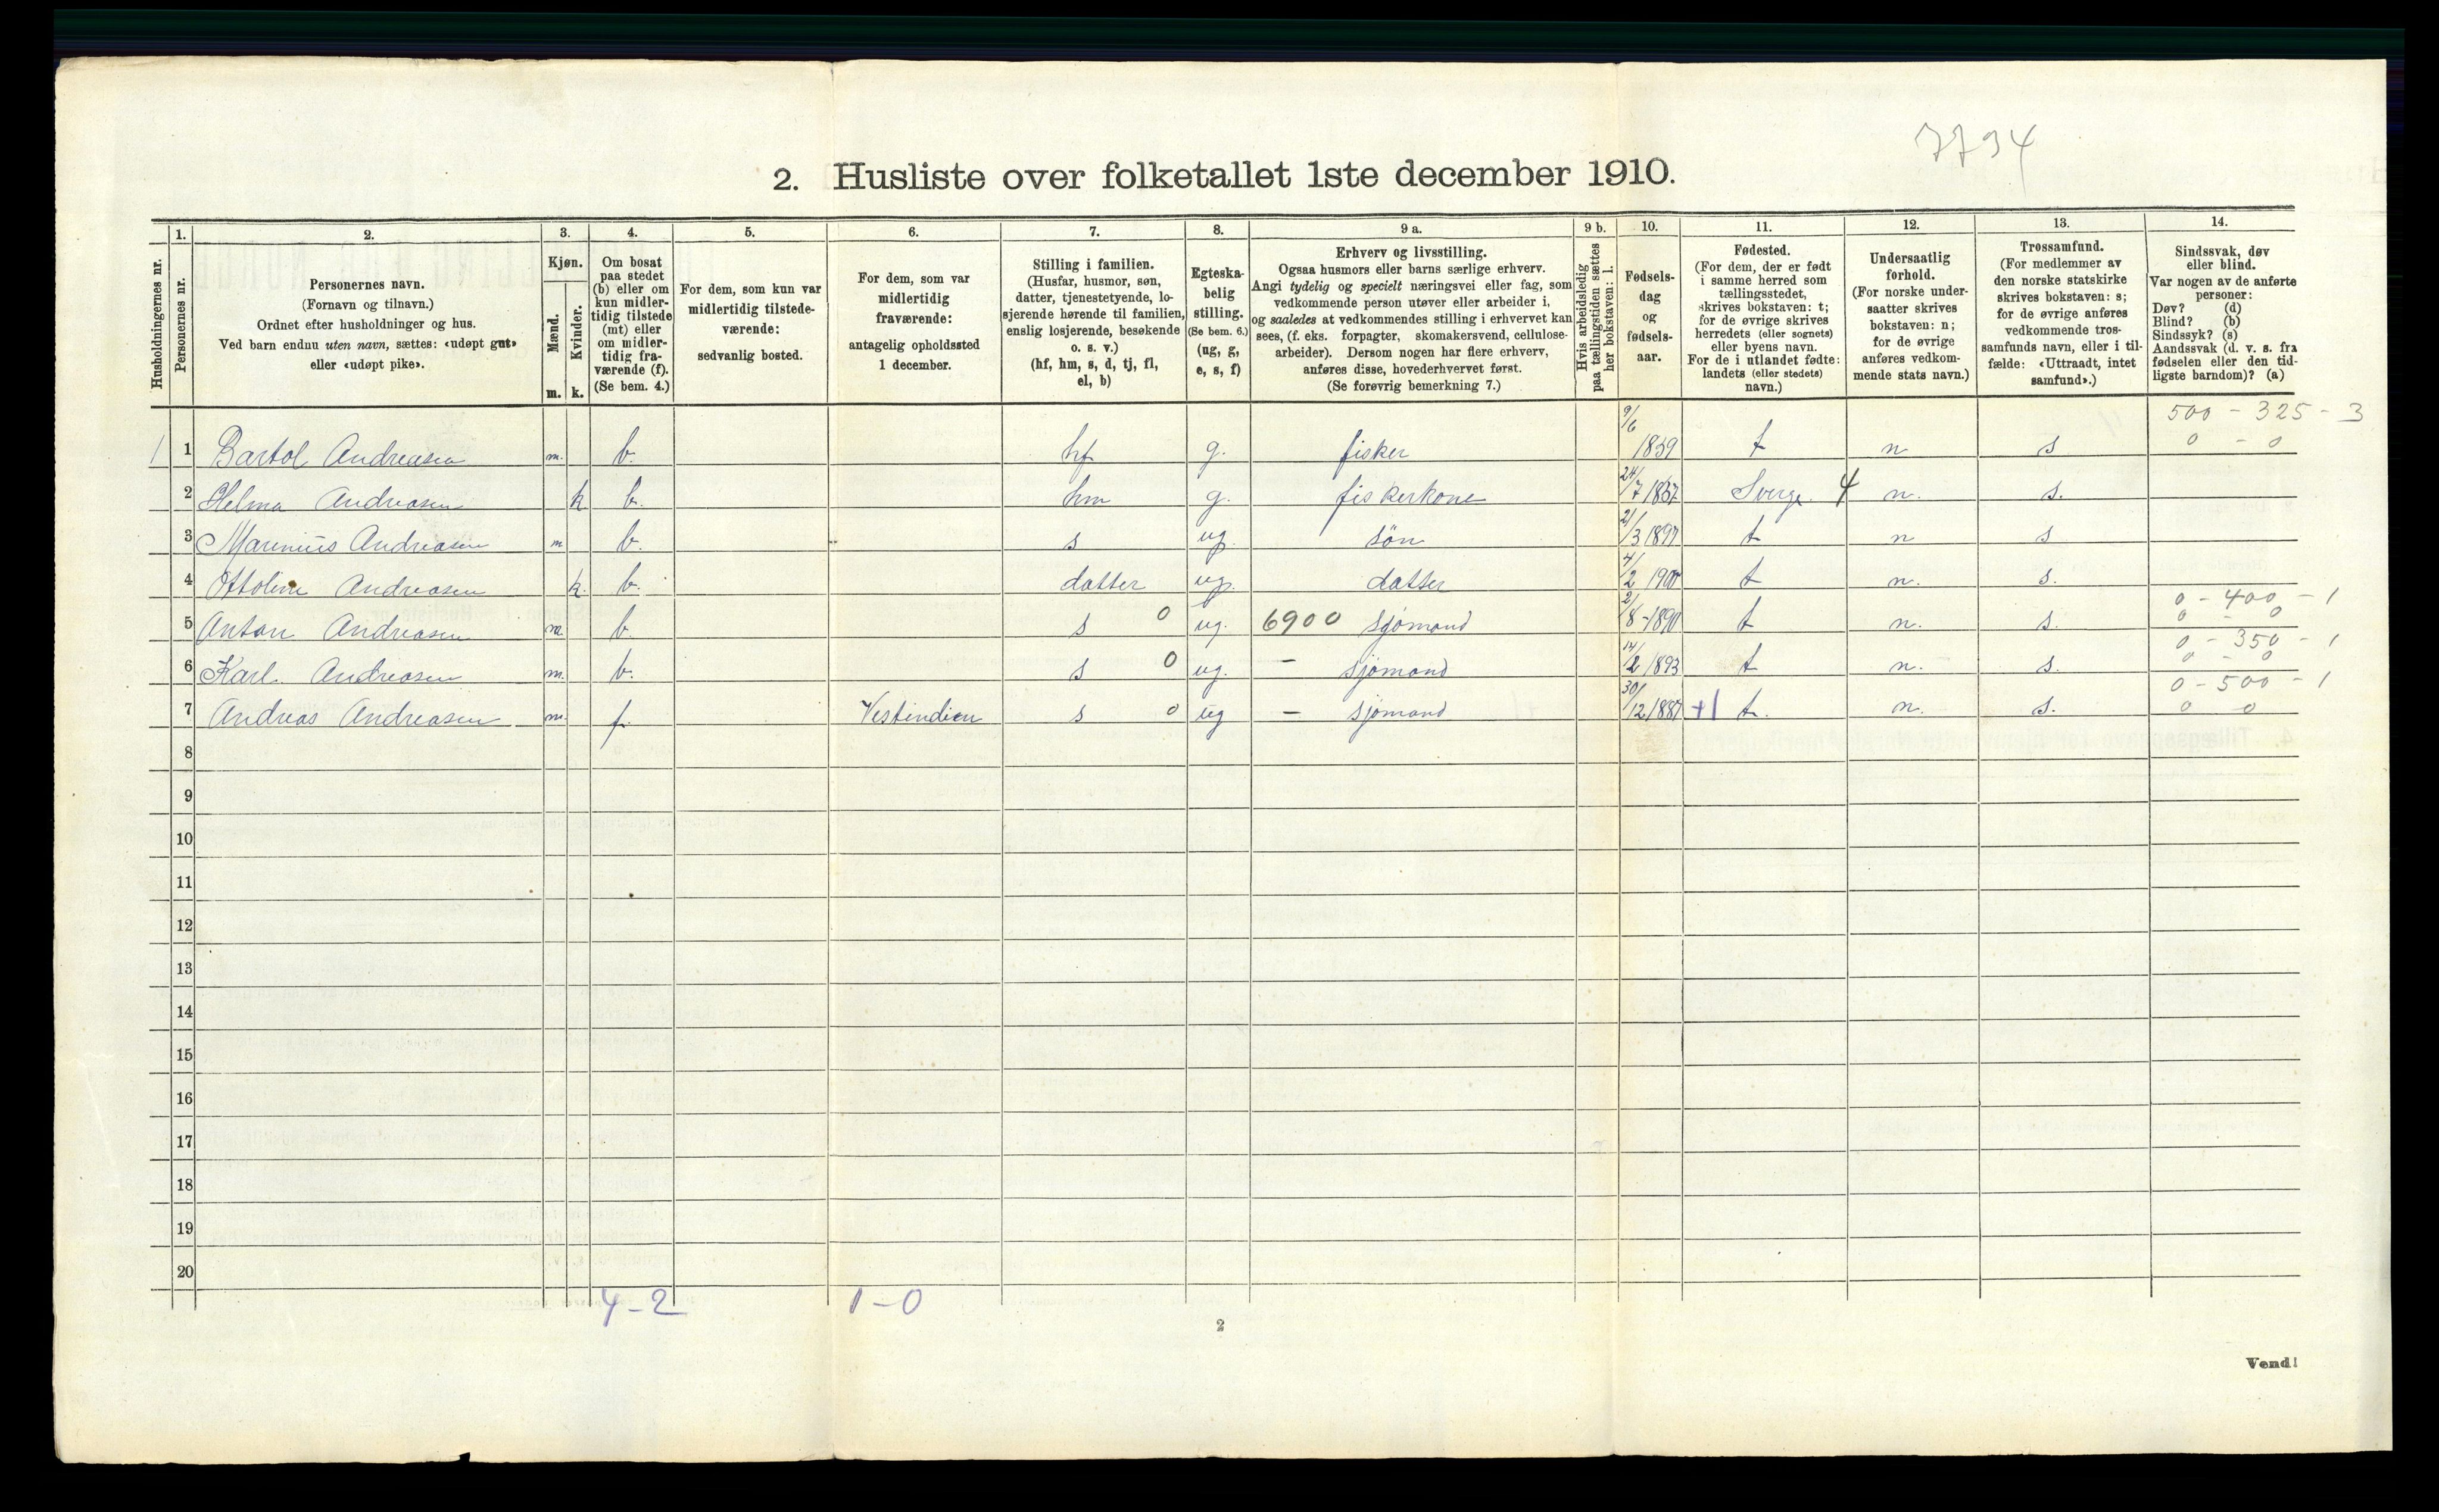 7794
2. Husliste over folketallet 1ste december 1910.
Husholdningernes nr.
1.
Personernes nr.
2.
Personernes navn.
(Fornavn og tilnavn.)
Ordnet efter husholdninger og hus.
Ved barn endnu uten navn, sættes: «udøpt gut»
eller «udøpt pike».
3.
Kjøn.
Mænd.
Kvinder.
m. k.
4.
Om bosat
paa stedet
(b) eller om
kun midler-
tidig tilstede
(mt) eller
om midler-
tidig fra-
værende (f).
(Se bem. 4.)
5.
For dem, som kun var
midlertidig tilstede-
værende:
sedvanlig bosted.
6.
For dem, som var
midlertidig
fraværende:
antagelig opholdssted
1 december.
7.
Stilling i familien.
(Husfar, husmor, søn,
datter, tjenestetyende, lo-
sjerende hørende til familien,
enslig losjerende, besøkende
o. s. v.)
(hf, hm, s, d, tj, fl,
el, b)
8.
Egteska-
belig
stilling.
(Se bem. 6.)
(ug, g,
e, s, f)
9 a.
Erhverv og livsstilling.
Ogsaa husmors eller barns særlige erhverv.
Angi tydelig og specielt næringsvei eller fag, som
vedkommende person utøver eller arbeider i,
og saaledes at vedkommendes stilling i erhvervet kan
sees, (f. eks. forpagter, skomakersvend, cellulose-
arbeider). Dersom nogen har flere erhverv,
anføres disse, hovederhvervet først.
(Se forøvrig bemerkning 7.)
9 b.
Hvis arbeidsledig
paa tællingstiden sættes
her bokstaven: l.
10.
Fødsels-
dag
og
fødsels-
aar.
11.
Fødested.
(For dem, der er født
i samme herred som
tællingsstedet,
skrives bokstaven: t;
for de øvrige skrives
herredets (eller sognets)
eller byens navn.
For de i utlandet fødte:
landets (eller stedets)
navn.)
12.
Undersaatlig
forhold.
(For norske under-
saatter skrives
bokstaven: n;
for de øvrige
anføres vedkom-
mende stats navn.)
13.
Trossamfund.
(For medlemmer av
den norske statskirke
skrives bokstaven: s;
for de øvrige anføres
vedkommende tros-
samfunds navn, eller i til-
fælde: «Uttraadt, intet
samfund».)
14.
Sindssvak, døv
eller blind.
Var nogen av de anførte
personer:
Døv? (d)
Blind? (b)
Sindssyk? (s)
Aandssvak (d. v. s. fra
fødselen eller den tid-
ligste barndom)? (a)
500 - 325 - 3
1 1 Bartol Andreasen m. b. hf g. fisker 9/6 1859 t n s 0 - 0
2 Helma Andreasen k b. hm g. fiskerkone 24/7 Sverge. 4 n. s.
3 Marinius Andreasen m b. s ug. søn 21/3 1897 t n s
4 Ottoline Andreasen k. b. datter ug. datter 4/2 1900 t n. s.
0 - 400 - 1
5 Anton Andreasen m. b. s 0 ug. 6900 sjømand 2/8 - 1890 t n. s. 0 - 0
0 - 350 - 1
6 Karl. Andreasen m. b. s 0 ug. — sjømand 14/2 1893 t n. s. 0 - 0
0 - 500 - 1
7 Andreas Andreasen m. f. Vestindien s 0 ug — sjømand 30/12 1887 +1 t. n. s. 0 0
8
9
10
11
12
13
14
15
16
17
18
19
20
4-2 1-0
2
Vend!